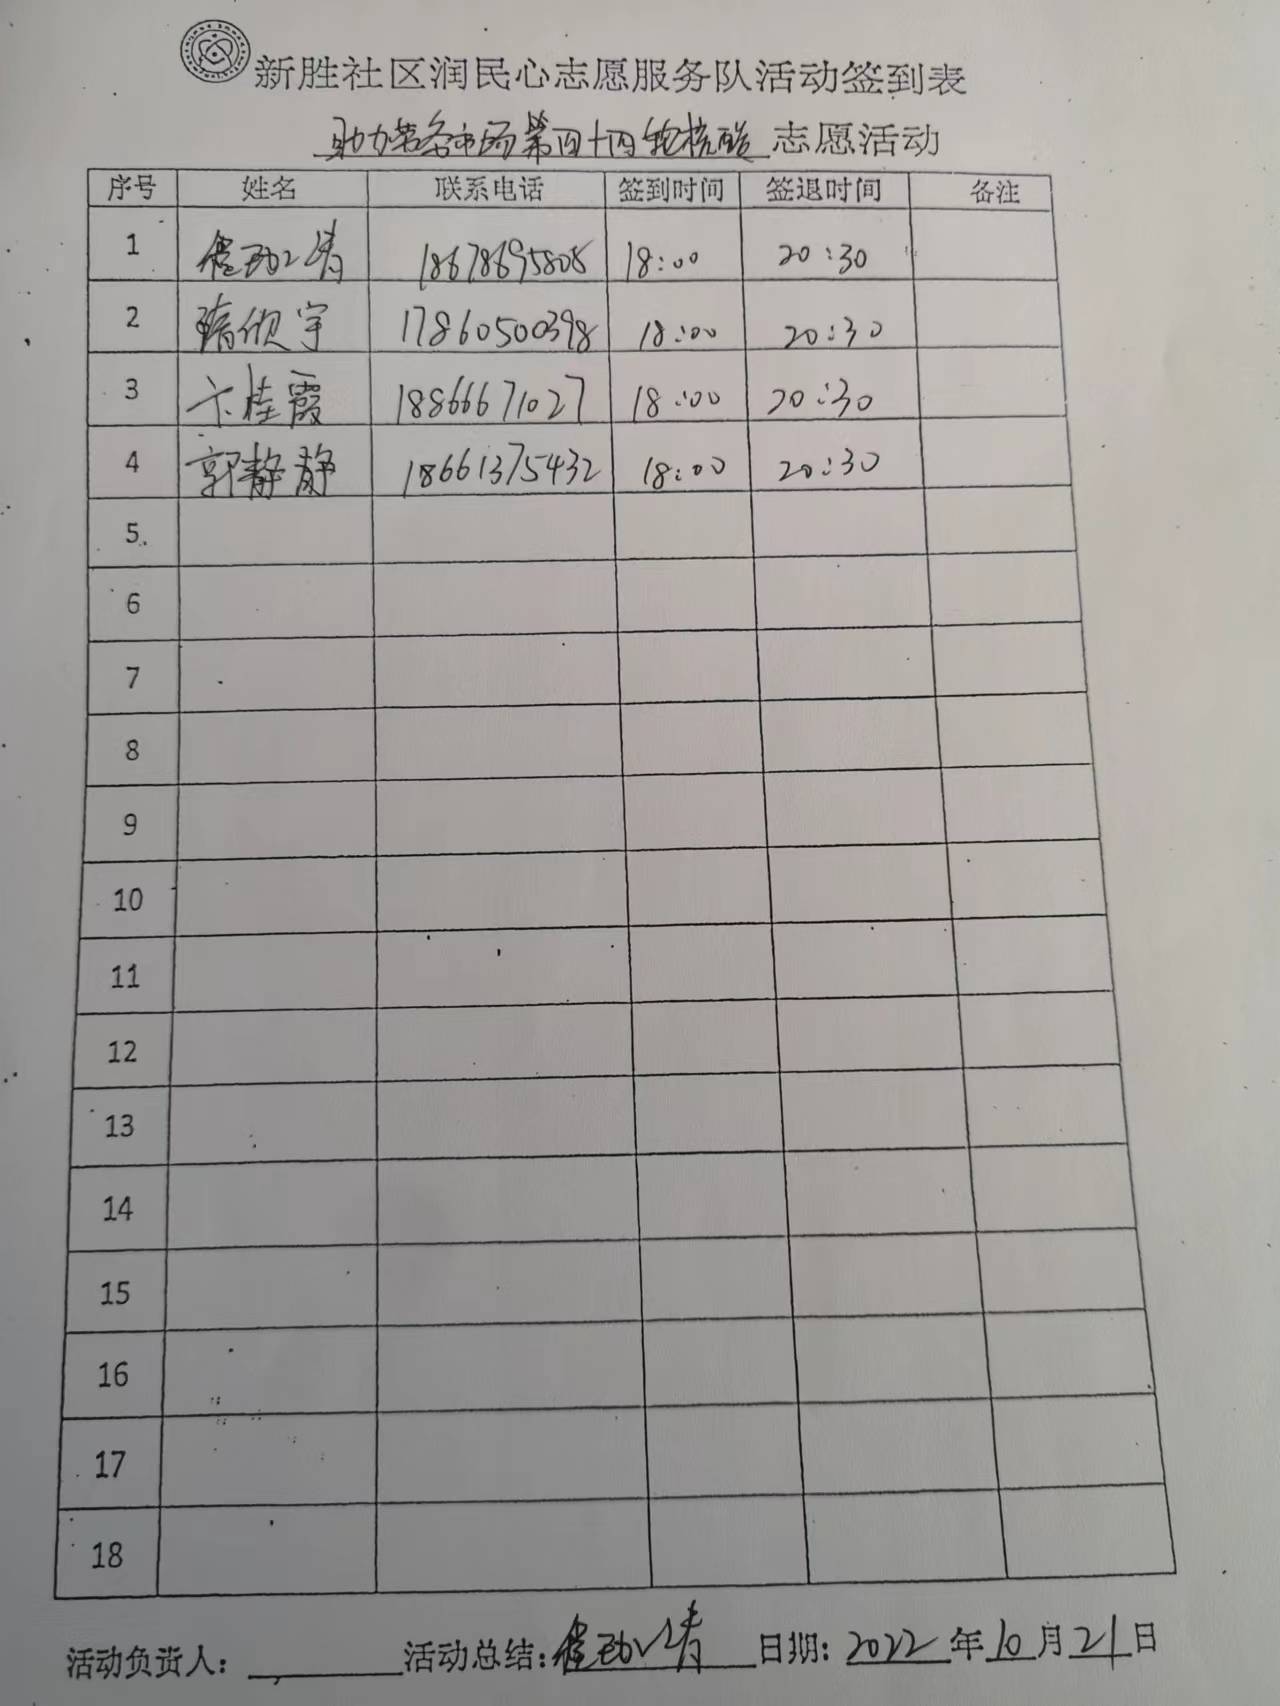 新胜社区润民心志愿服务队活动签到表
助力劳务市场第四十四轮核酸 志愿活动
序号 姓名 联系电话 签到时间 签退时间 备注
1 18678695808 18:00 20:30
2 欣宇 17860500398 18:00 20:30
3 卞桂霞 18866671027 18:00 20:30
4 郭静静 18661375432 18:00 20:30
5
6
7
8
9
10
11
12
13
14
15
16
17
18
活动负责人: 活动总结: 日期: 2022年10月21日